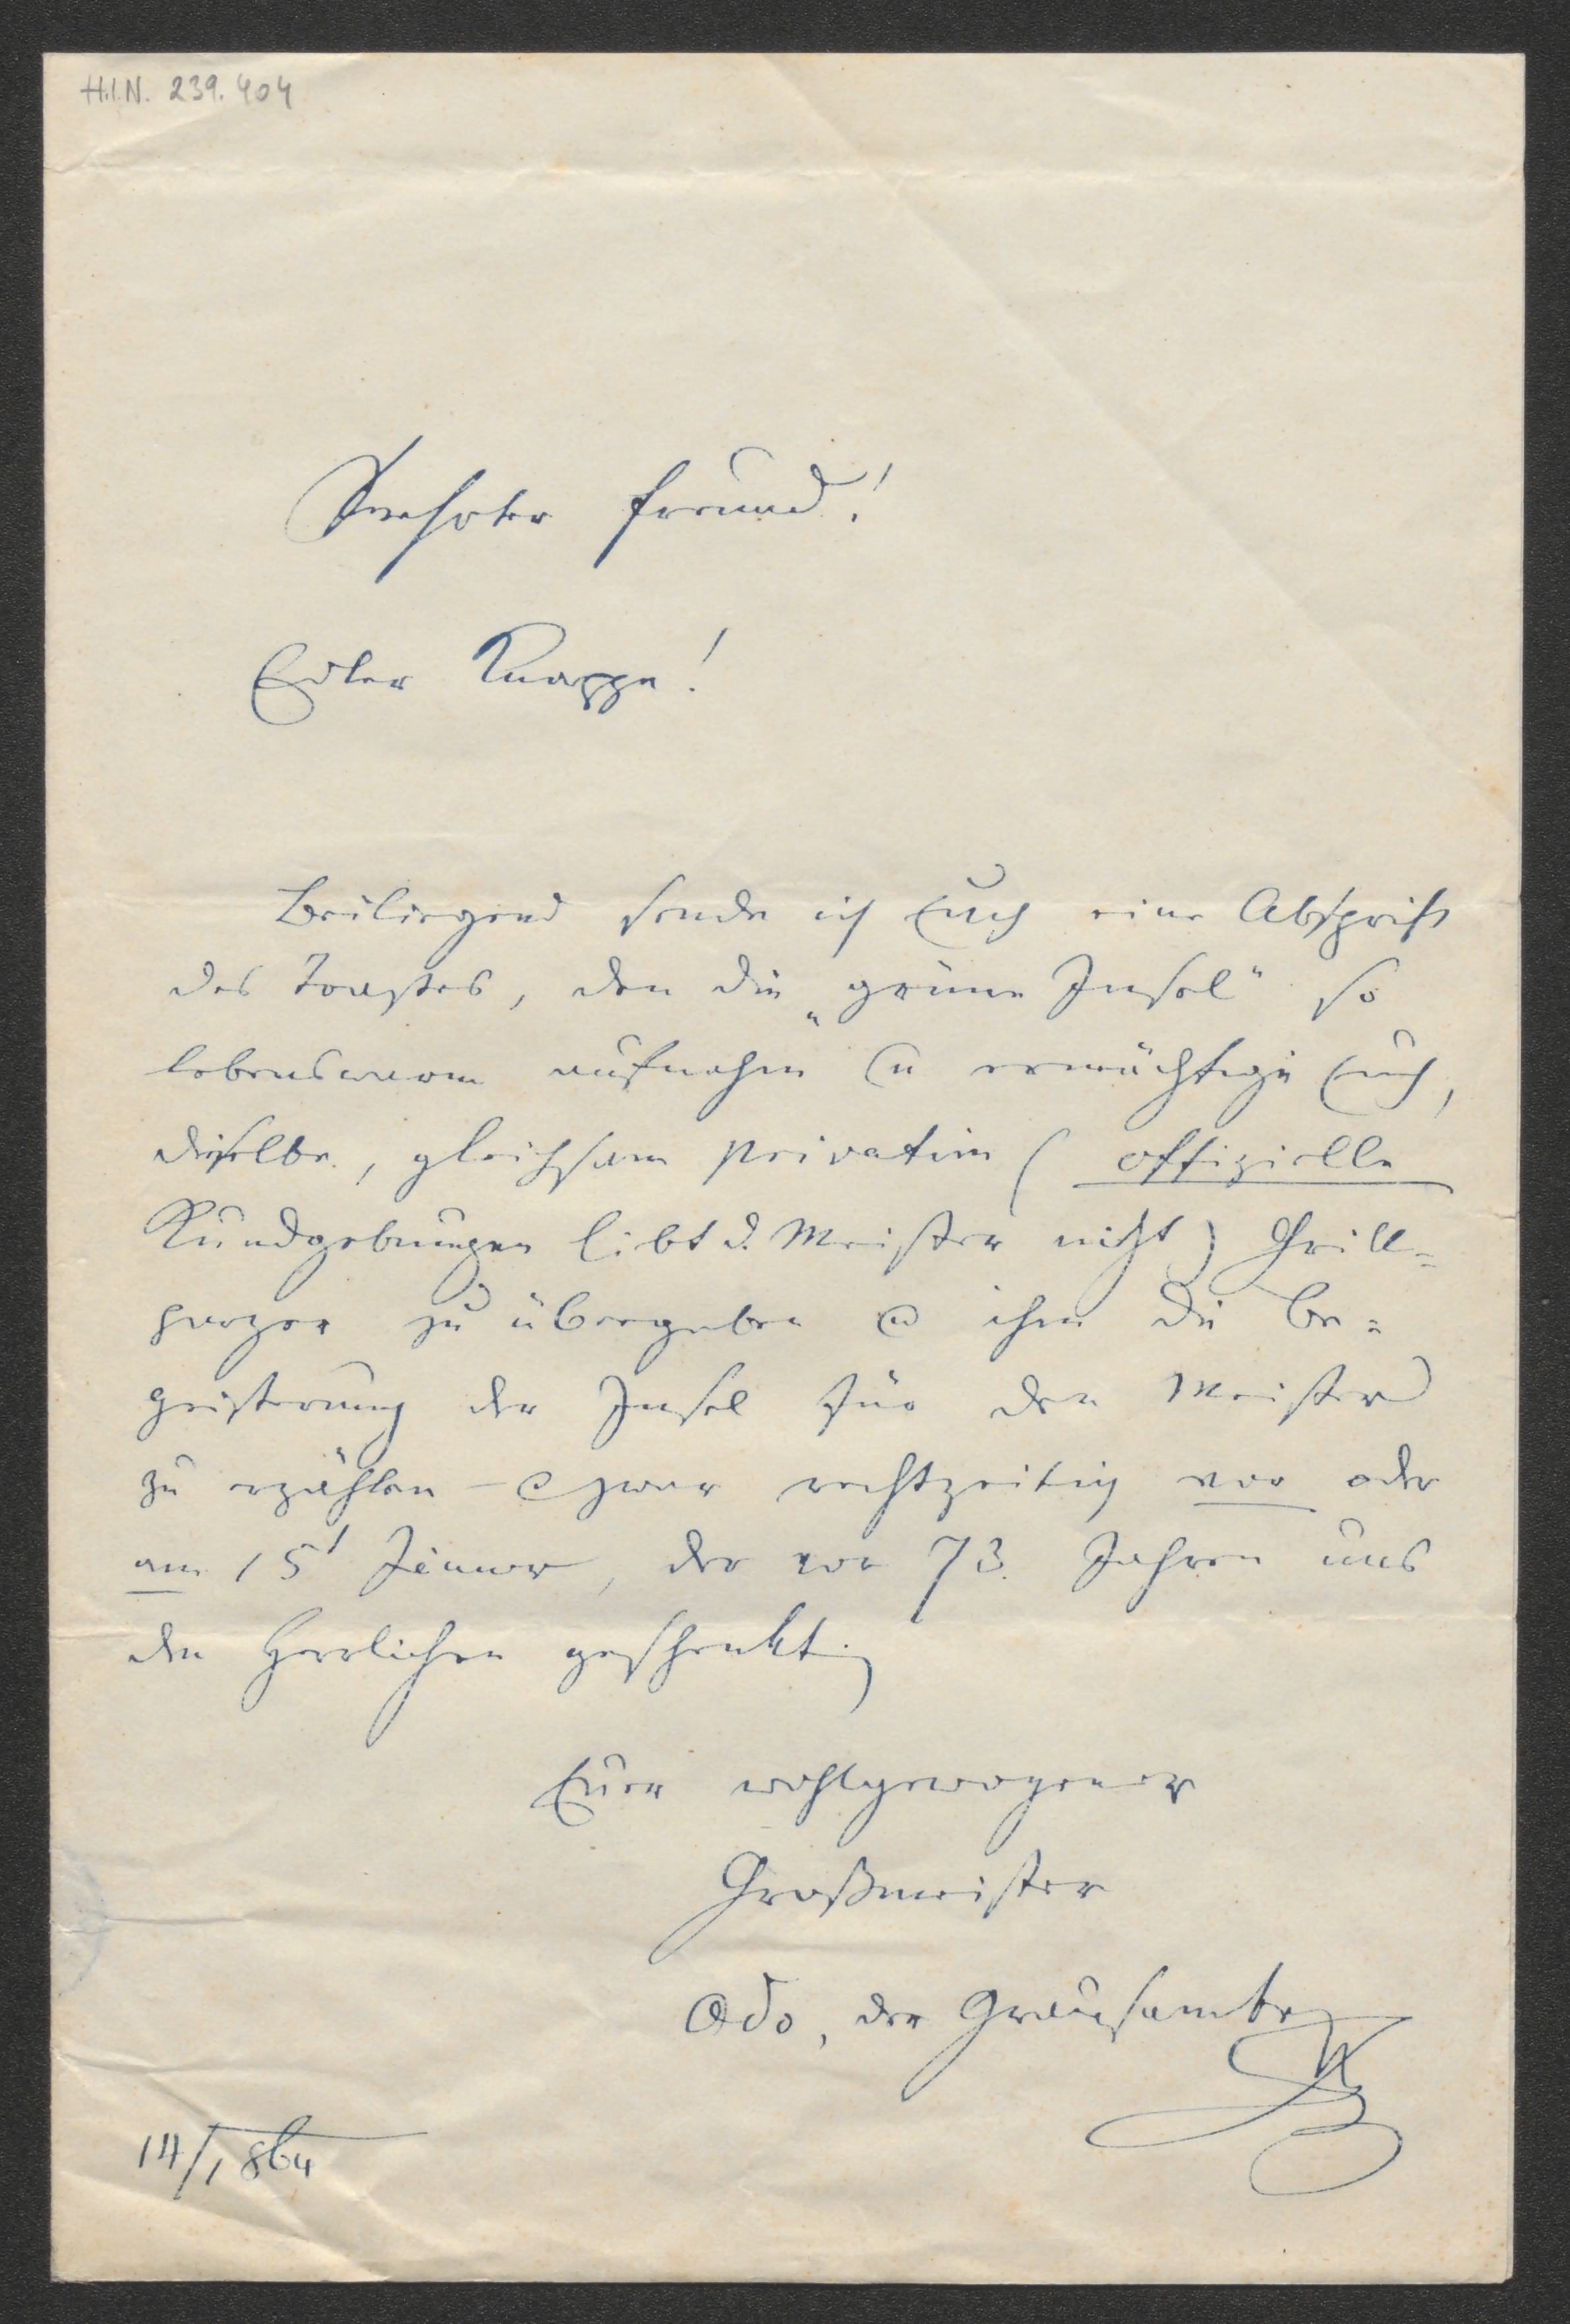 H.I.N. 239.404
Verehrter Freund!
Edler Knappe!
Beiliegend sende ich Euch eine Abschrift
des Toastes, den die „grüne Insel" so
lebenswarm aufnahm u ermächtige Euch,
dieselbe, gleichsam privatim (offizielle
Kundgebungen libt d. Meister nicht) Grill=
parzer zu übergeben u ihm die Be=
geisterung der Insel für den Meister
zu erzählen – u zwar rechtzeitig vor oder
am 15t Jänner, der vor 73. Jahren uns
den Herrlichen geschenkt.
Euer wohlgewogener
Großmeister
Odo, der Grausamte
14/1 864